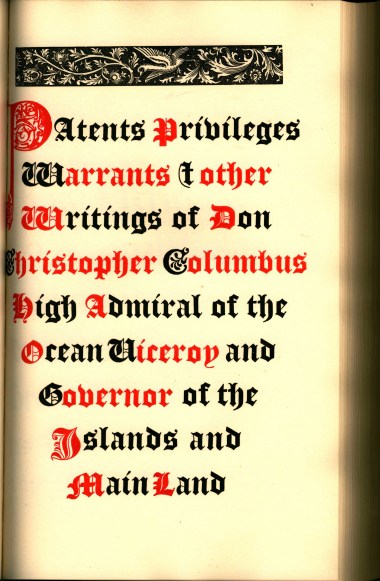 Patents Privileges
Warrants & other
Writings of Don
Christopher Columbus
High Admiral of the
Ocean Viceroy and
Governor of the
Islands and
Main Land